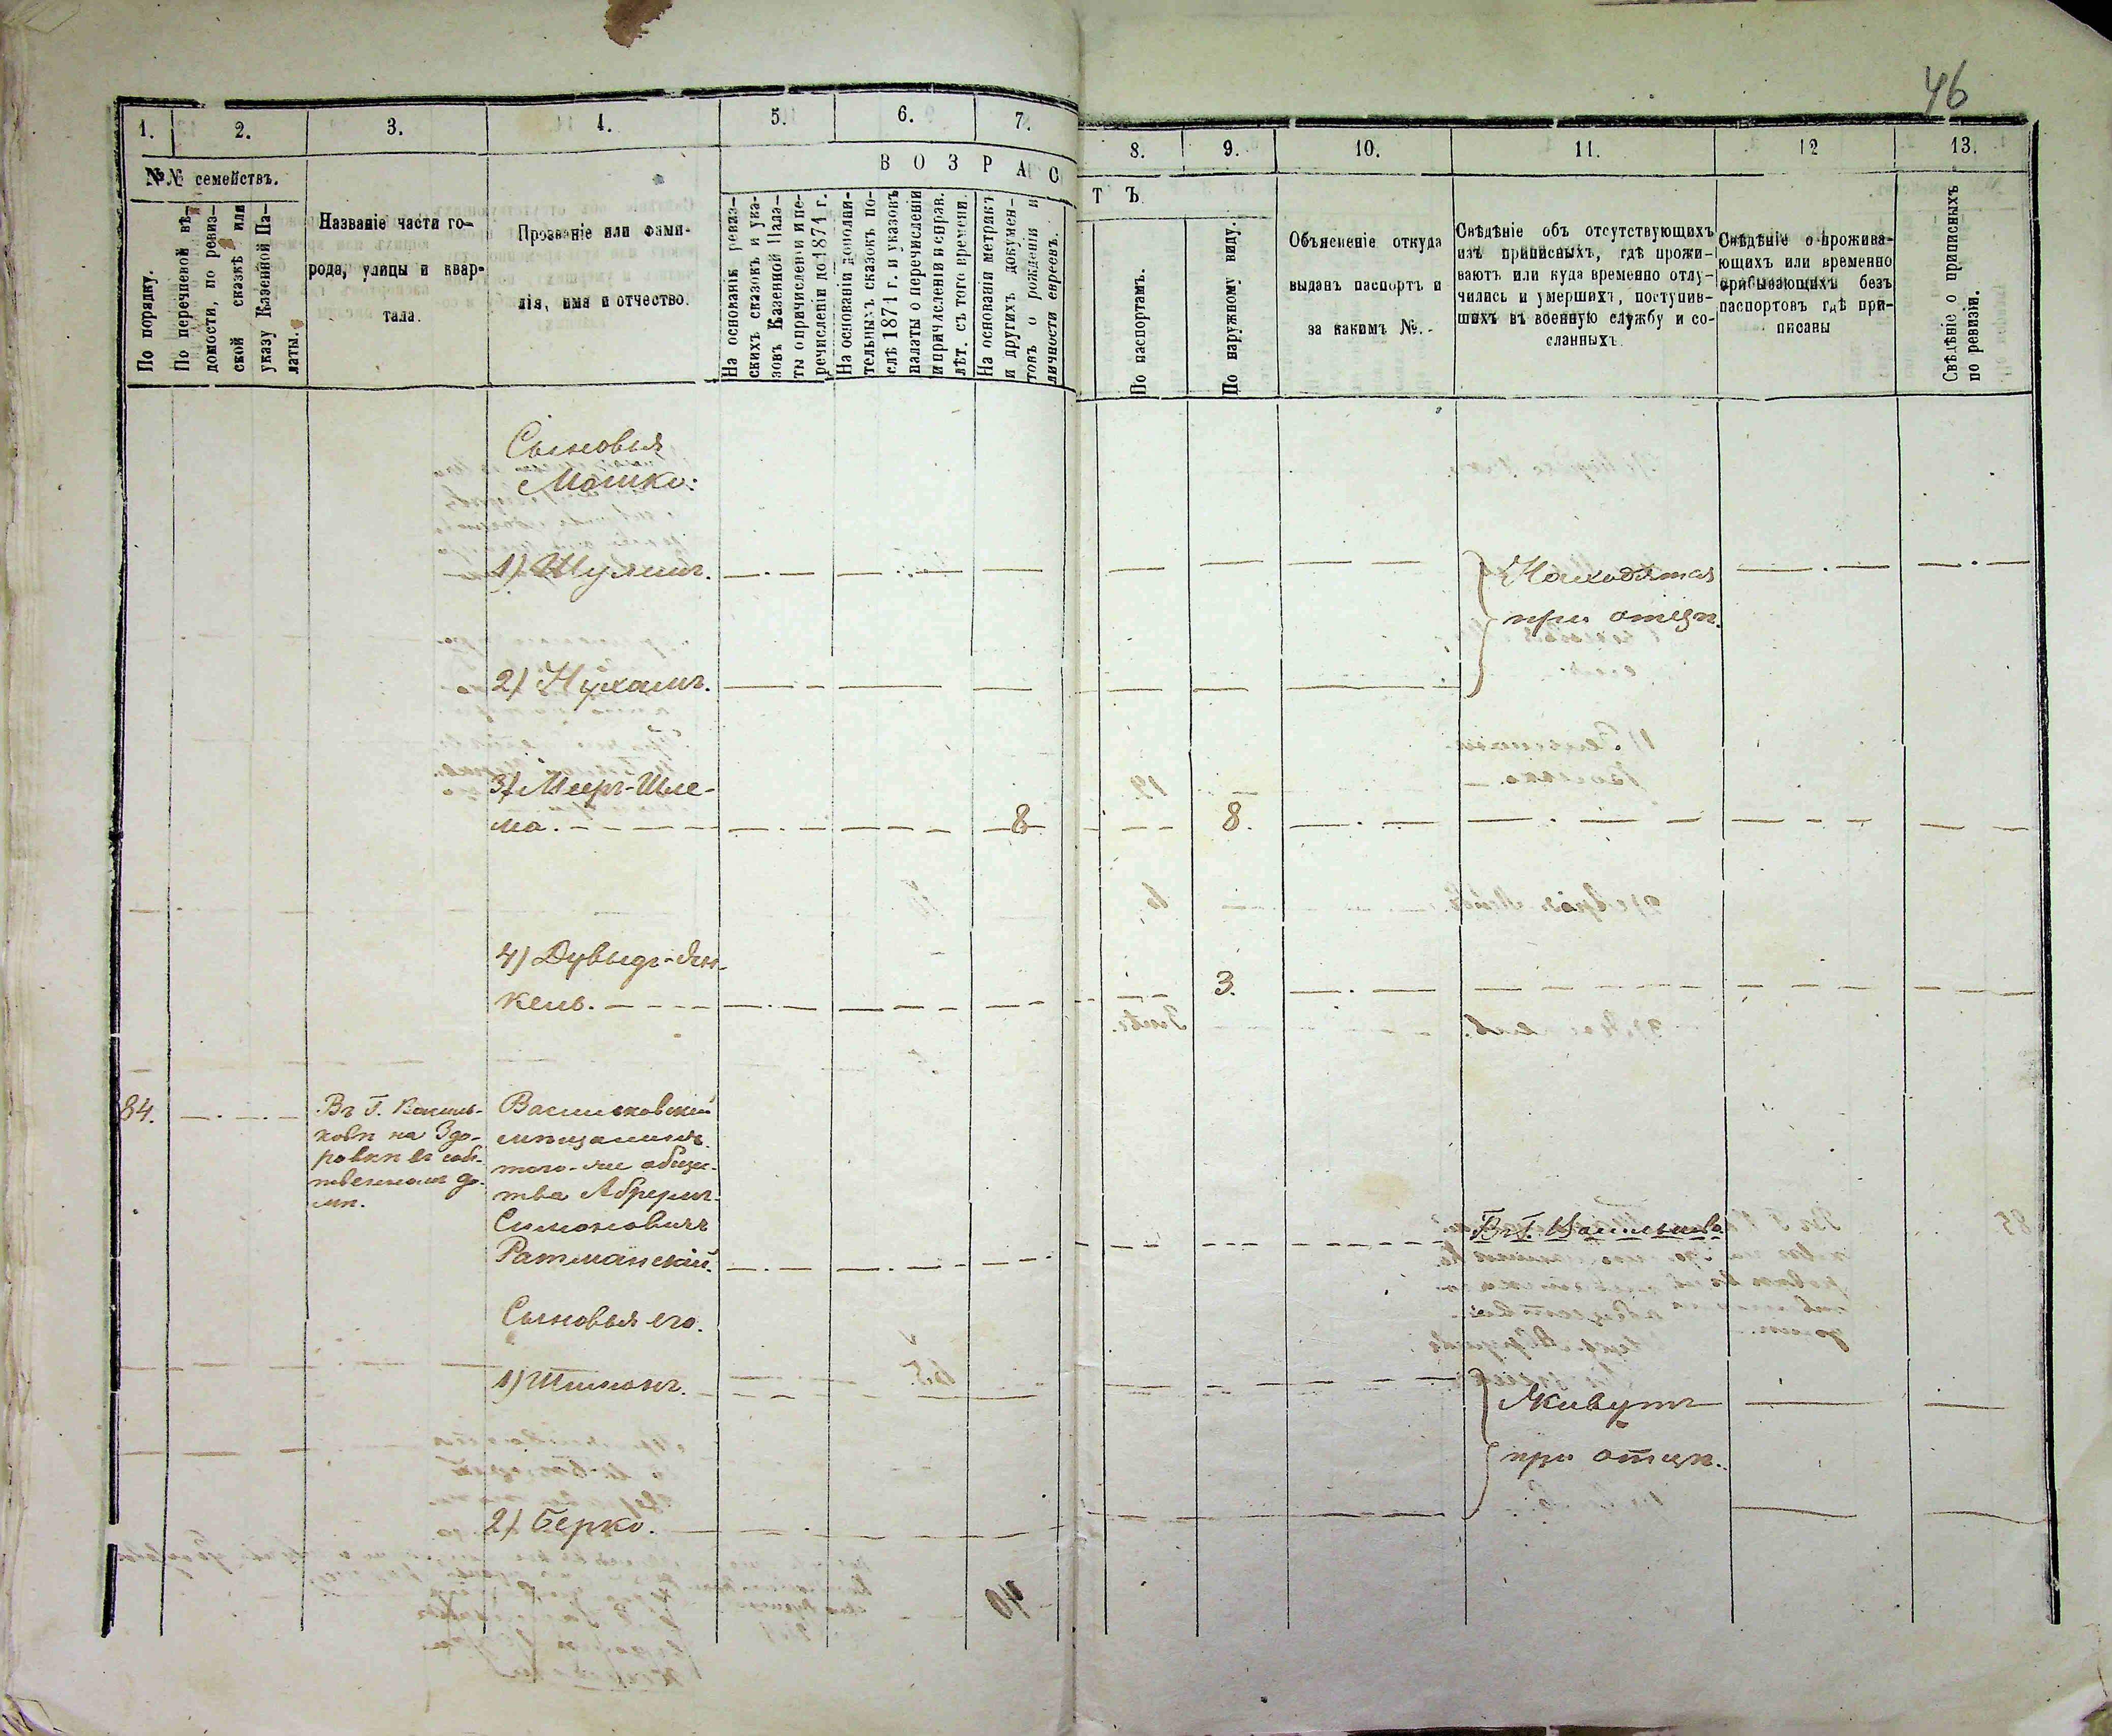 46
1.
2.
3.
4.
5.
6.
7.
8.
9.
10.
11.
12
13.
№№ семействъ.
По порядку.
По перечневой вѣ-
домости, по ревиз-
ской сказкѣ или
указу Казенной Па-
латы.
Названіе части го-
рода, улицы и квар-
тала.
Прозваніе или фами-
лія, имя и отчество.
ВОЗРАСТЪ
На основаніи ревиз-
скихъ сказокъ и ука-
зовъ Казенной Пала-
ты о причисленіи и пе-
речисленіи до 1874 г.
На основаніи дополни-
тельныхъ сказокъ по-
слѣ 1874 г. и указовъ
палаты о перечисленіи
и причисленіи и справ.
лѣт. съ того времени.
На основаніи метрикъ
и другихъ докумен-
товъ о рожденіи и
личности евреевъ.
По паспортамъ.
По наружному виду.
Объясненіе откуда
выданъ паспортъ и
за какимъ №.
Свѣдѣніе объ отсутствующихъ
изъ приписныхъ, гдѣ прожи-
ваютъ или куда временно отлу-
чились и умершихъ, поступив-
шихъ въ военную службу и со-
сланныхъ.
Свѣдѣніе о прожива-
ющихъ или временно
прибывающихъ безъ
паспортовъ гдѣ при-
писаны
Свѣдѣніе о приписныхъ
по ревизіи.
Сыновья
Мошко:
1) Шулимъ.
Находятся
при отцѣ.
2) Нухимъ.
3) Мееръ-Шле-
ма. 8 8.
4) Дувыдъ-Ян-
кель. 3.
84.
Въ Г. Василь-
ковѣ на Здо-
ровкѣ въ соб-
ственномъ до-
мѣ.
Васильковскій
мѣщанинъ
того-же общес-
тва Абрумъ
Симоновичъ
Ратманскій.
Въ Г. Васильковѣ
Сыновья его.
1) Шимонъ.
Живутъ
при отцѣ.
2) Берко.